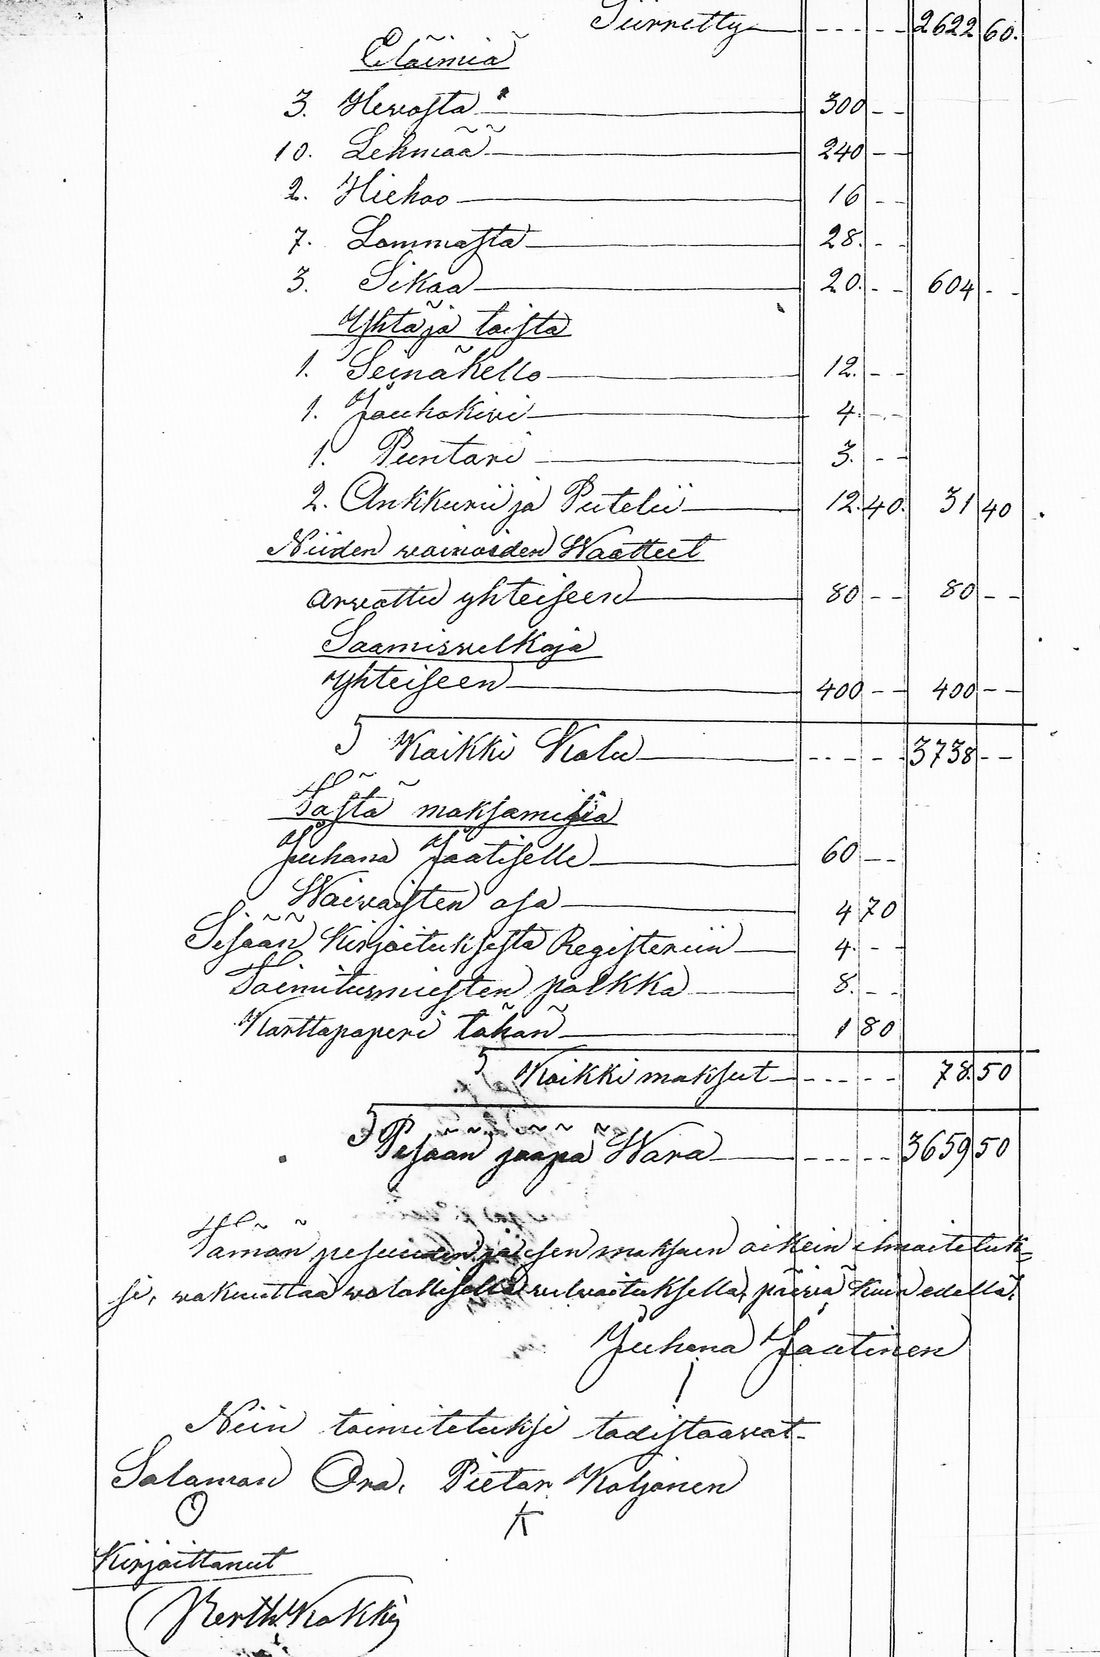 Siirretty - - - - - 2622 60.
Eläimiä
3. Hewosta 300 - -
10. Lehmää 240 - -
2. Hiehoo 16 - -
7. Lammasta 28. - -
3. Sikaa 20. - - 604 - -
Yhtä ja toista
1. Seinäkello 12. - -
1. Jauhokivi 4. - -
1. Puntari 3. - -
2. Ankkurii ja Putelii 12. 40. 31 40
Niiden wainaiden Waatteet
arwattu yhteiseen 80 - - 80 - -
Saamiswelkoja
yhteiseen 400 - - 400 - -
Kaikki Kalu - - - - - 3738 - -
Tästä maksamisia
Juhana Jaatiselle 60 - -
Waiwaisten osa 4 70
Sisään Kirjoituksesta Registeriin 4. - -
Toimitusmiesten palkka 8. - -
Karttapaperi tähän 1 80
Kaikki maksut - - - - - 78. 50
Pesään jääpä Wara - - - - - 3659 50
Tämän pesuuden ja sen maksuen oikein ilmoiteluk=
si, wakuuttaa walallisella welwoituksella, päiwä kuin edellä.
Juhana Jaatinen
Niin toimiteluksi todistaawat.
Salaman Ora. Pietar Koljonen
O K
Kirjoittanut
Perth. Kokki